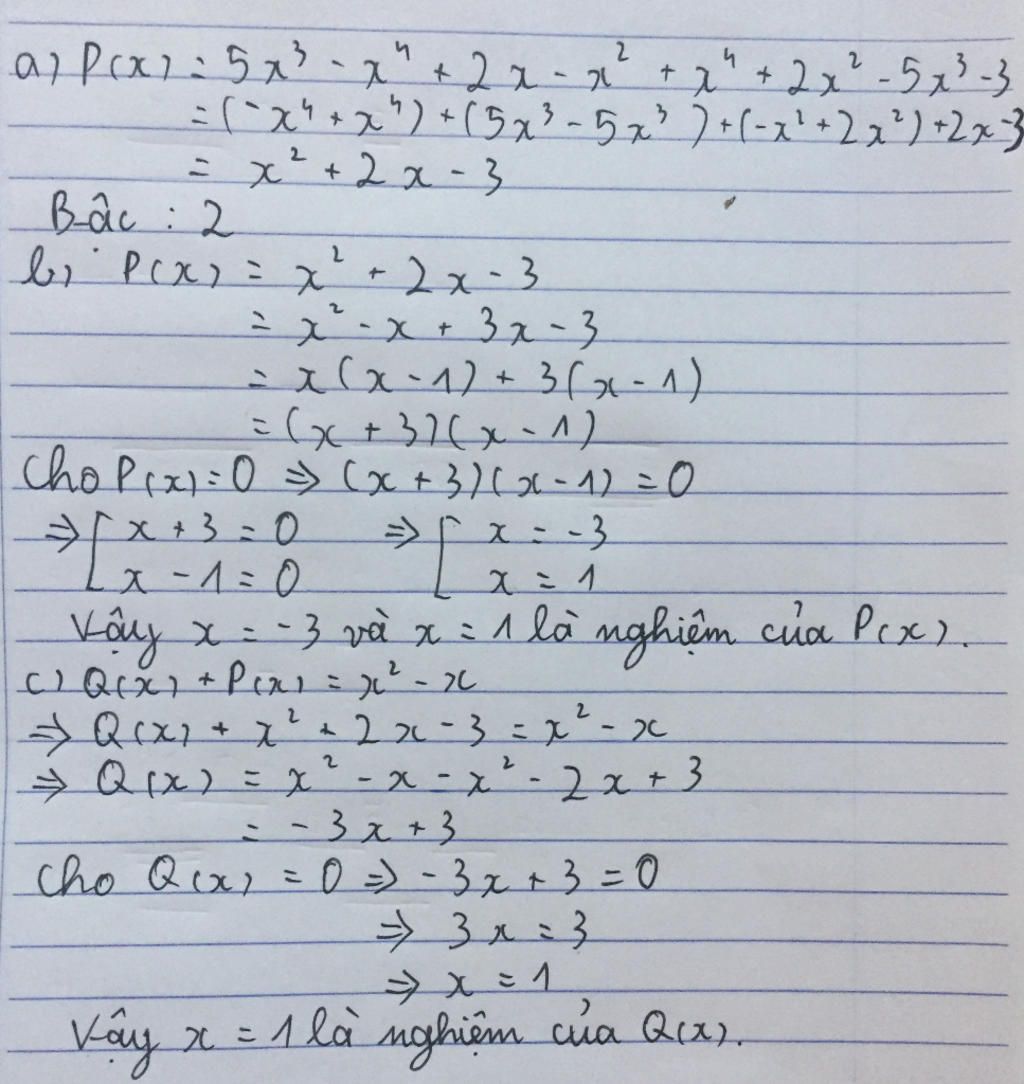 a) P(x) = 5x³ - x⁴ + 2x - x² + x⁴ + 2x² - 5x³ - 3
= (-x⁴ + x⁴) + (5x³ - 5x³) + (-x² + 2x²) + 2x - 3
= x² + 2x - 3
Bậc : 2
b) P(x) = x² + 2x - 3
= x² - x + 3x - 3
= x(x - 1) + 3(x - 1)
= (x + 3)(x - 1)
Cho P(x) = 0 ⇒ (x + 3)(x - 1) = 0
⇒ [ x + 3 = 0 ⇒ [ x = -3
x - 1 = 0 x = 1
Vậy x = -3 và x = 1 là nghiệm của P(x).
c) Q(x) + P(x) = x² - x
⇒ Q(x) + x² + 2x - 3 = x² - x
⇒ Q(x) = x² - x - x² - 2x + 3
= -3x + 3
Cho Q(x) = 0 ⇒ -3x + 3 = 0
⇒ 3x = 3
⇒ x = 1
Vậy x = 1 là nghiệm của Q(x).